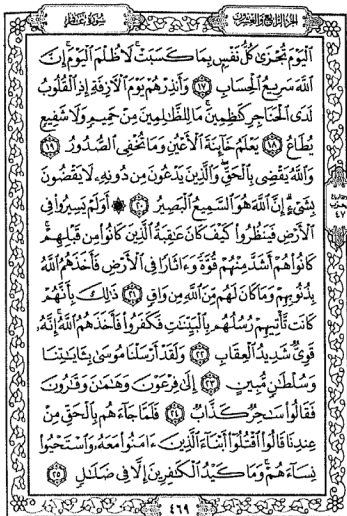 الجزء الرابع والعشرون
سورة غافر
ٱلْيَوْمَ تُجْزَىٰ كُلُّ نَفْسٍۭ بِمَا كَسَبَتْ ۚ لَا ظُلْمَ ٱلْيَوْمَ ۚ إِنَّ
ٱللَّهَ سَرِيعُ ٱلْحِسَابِ ١٧ وَأَنذِرْهُمْ يَوْمَ ٱلْءَازِفَةِ إِذِ ٱلْقُلُوبُ
لَدَى ٱلْحَنَاجِرِ كَٰظِمِينَ ۚ مَا لِلظَّٰلِمِينَ مِنْ حَمِيمٍ وَلَا شَفِيعٍ
يُطَاعُ ١٨ يَعْلَمُ خَآئِنَةَ ٱلْأَعْيُنِ وَمَا تُخْفِى ٱلصُّدُورُ ١٩
وَٱللَّهُ يَقْضِى بِٱلْحَقِّ ۖ وَٱلَّذِينَ يَدْعُونَ مِن دُونِهِۦ لَا يَقْضُونَ
بِشَىْءٍ ۗ إِنَّ ٱللَّهَ هُوَ ٱلسَّمِيعُ ٱلْبَصِيرُ ٢٠ ۞ أَوَلَمْ يَسِيرُوا۟ فِى
ٱلْأَرْضِ فَيَنظُرُوا۟ كَيْفَ كَانَ عَٰقِبَةُ ٱلَّذِينَ كَانُوا۟ مِن قَبْلِهِمْ ۚ
كَانُوا۟ هُمْ أَشَدَّ مِنْهُمْ قُوَّةً وَءَاثَارًا فِى ٱلْأَرْضِ فَأَخَذَهُمُ ٱللَّهُ
بِذُنُوبِهِمْ وَمَا كَانَ لَهُم مِّنَ ٱللَّهِ مِن وَاقٍ ٢١ ذَٰلِكَ بِأَنَّهُمْ
كَانَت تَّأْتِيهِمْ رُسُلُهُم بِٱلْبَيِّنَٰتِ فَكَفَرُوا۟ فَأَخَذَهُمُ ٱللَّهُ ۚ إِنَّهُۥ
قَوِىٌّ شَدِيدُ ٱلْعِقَابِ ٢٢ وَلَقَدْ أَرْسَلْنَا مُوسَىٰ بِـَٔايَٰتِنَا
وَسُلْطَٰنٍ مُّبِينٍ ٢٣ إِلَىٰ فِرْعَوْنَ وَهَٰمَٰنَ وَقَٰرُونَ
فَقَالُوا۟ سَٰحِرٌ كَذَّابٌ ٢٤ فَلَمَّا جَآءَهُم بِٱلْحَقِّ مِنْ
عِندِنَا قَالُوا۟ ٱقْتُلُوٓا۟ أَبْنَآءَ ٱلَّذِينَ ءَامَنُوا۟ مَعَهُۥ وَٱسْتَحْيُوا۟
نِسَآءَهُمْ ۚ وَمَا كَيْدُ ٱلْكَٰفِرِينَ إِلَّا فِى ضَلَٰلٍ ٢٥
٤٦٩